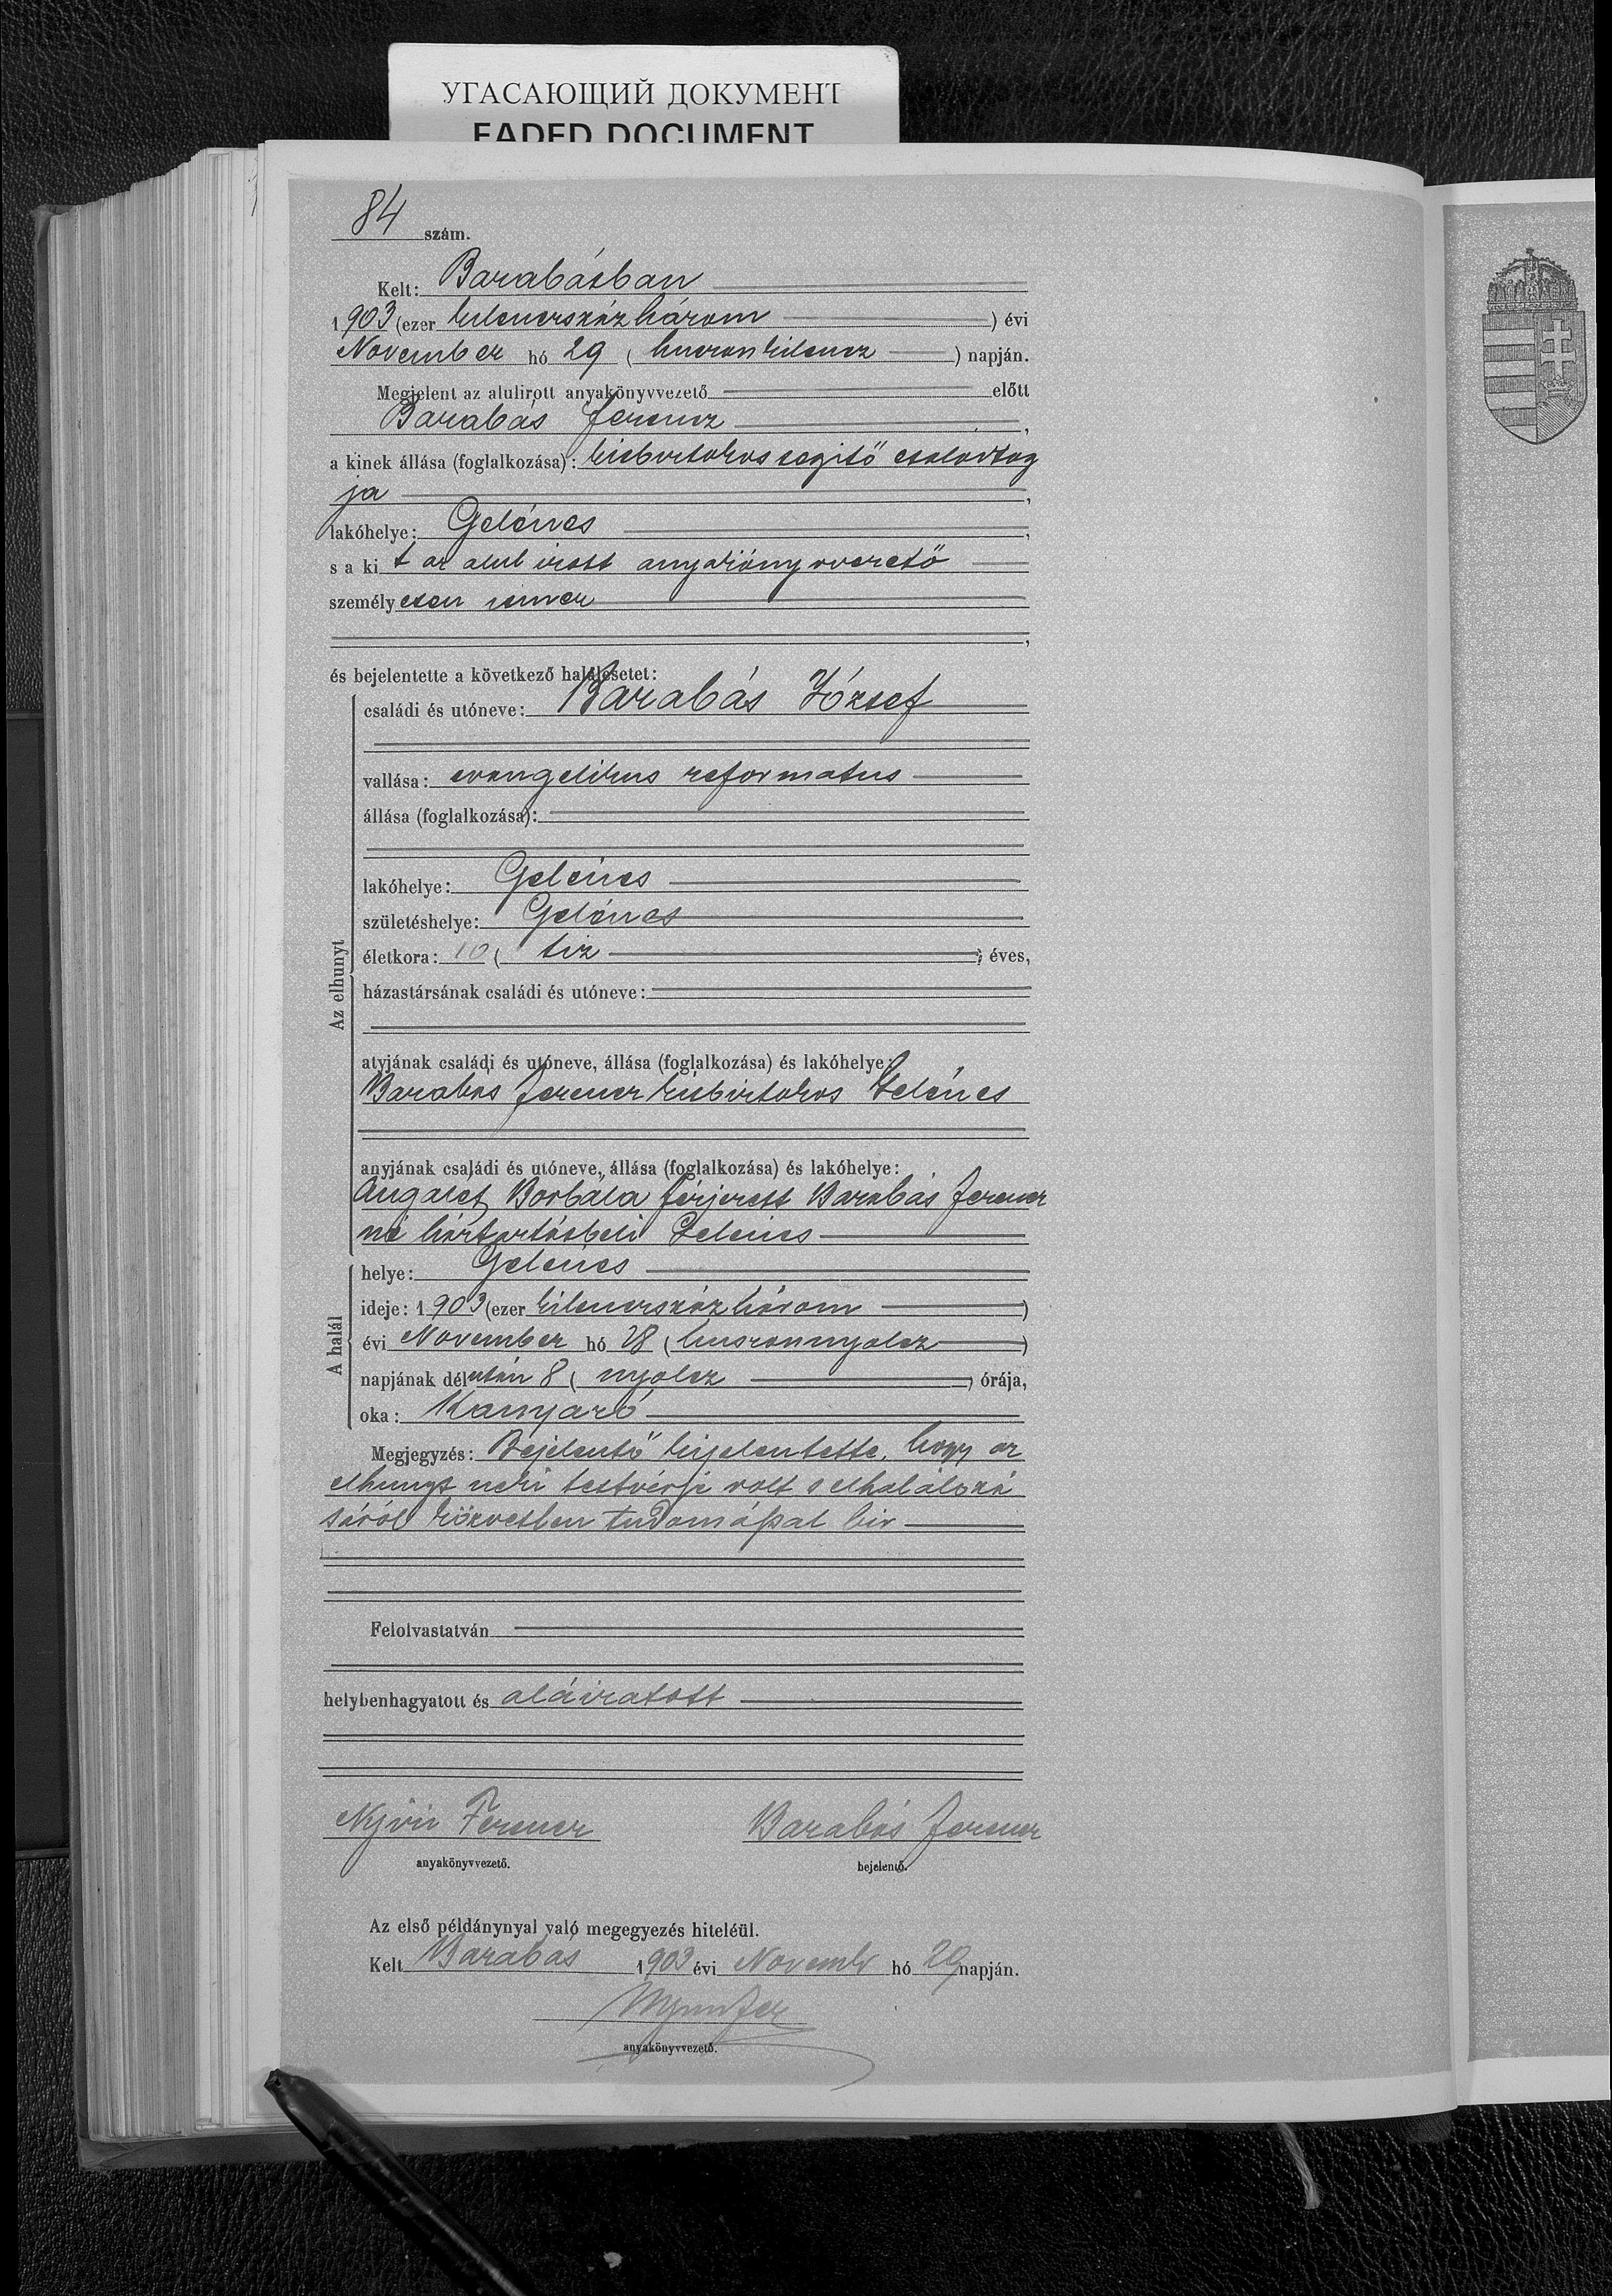 УГАСАЮЩИЙ ДОКУМЕНТ
FADED DOCUMENT
84 szám.
Kelt: Barabásban
1903 (ezer kilenczszázhárom ) évi
November hó 29 ( huszonkilencz ) napján.
Megjelent az alulirott anyakönyvvezető előtt
Barabás Ferencz ,
a kinek állása (foglalkozása): kisbirtokos segitő csaladtag
ja ,
lakóhelye: Gelénes ,
s a ki t az alul irott anyakönyvvezető
személy esen ismer
,
és bejelentette a következő halálesetet:
Az elhunyt
családi és utóneve: Barabás József
vallása: evangelikus reformatus
állása (foglalkozása):
lakóhelye: Gelénes
születéshelye: Gelénes
életkora: 10 ( tiz ) éves,
házastársának családi és utóneve:
atyjának családi és utóneve, állása (foglalkozása) és lakóhelye:
Barabás Ferencz kisbirtokos Gelénes
anyjának családi és utóneve, állása (foglalkozása) és lakóhelye:
Borbála férjezett Barabás Ferencz
né háztartásbeli Gelénes
A halál
helye: Gelénes
ideje: 1903 (ezer kilenczszázhárom )
évi November hó 28 ( huszonnyolcz )
napjának délután 8 ( nyolcz ) órája,
oka: Kanyaró
Megjegyzés: Bejelentő kijelentette, hogy az
elhunyt neki testvérje volt s elhalálozá
sáról közvetlen tudomással bir
Felolvastatván
helybenhagyatott és aláiratott
Ferencz Barabás Ferencz
anyakönyvvezető. bejelentő.
Az első példánynyal való megegyezés hiteléül.
Kelt Barabás 1903 évi Novemb hó 29 napján.
anyakönyvvezető.